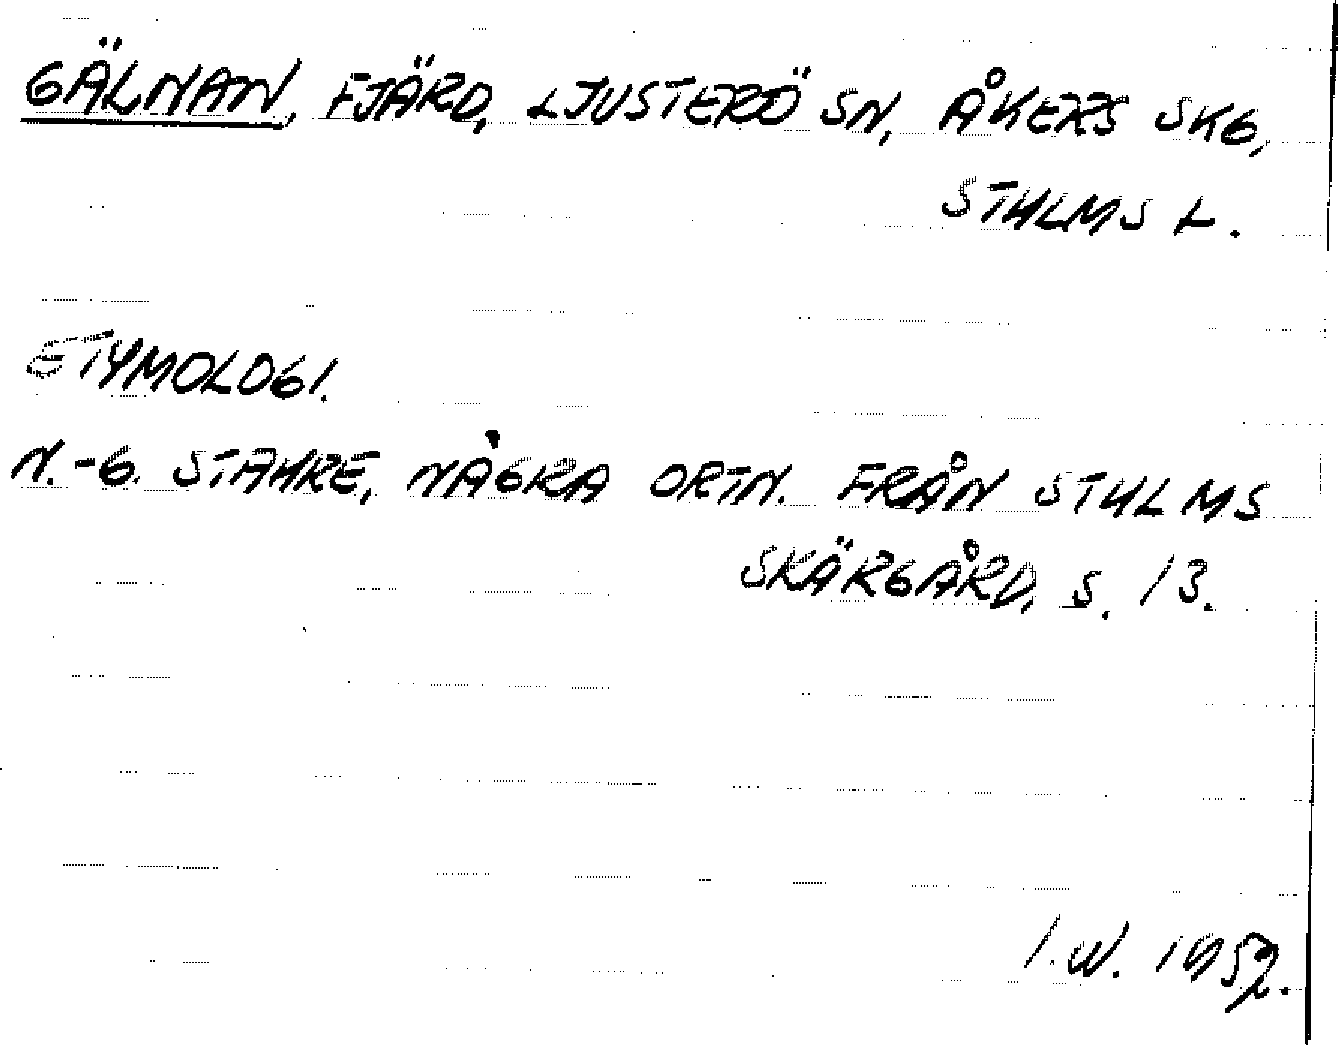 GÄLNAN, FJÄRD, LJUSTERÖ SN, ÅKERS SKG,
STHLMS L.
ETYMOLOGI.
N.-G. STAHRE, NÅGRA ORTN. FRÅN STHLMS
SKÄRGÅRD, S. 13.
I.W. 1952.